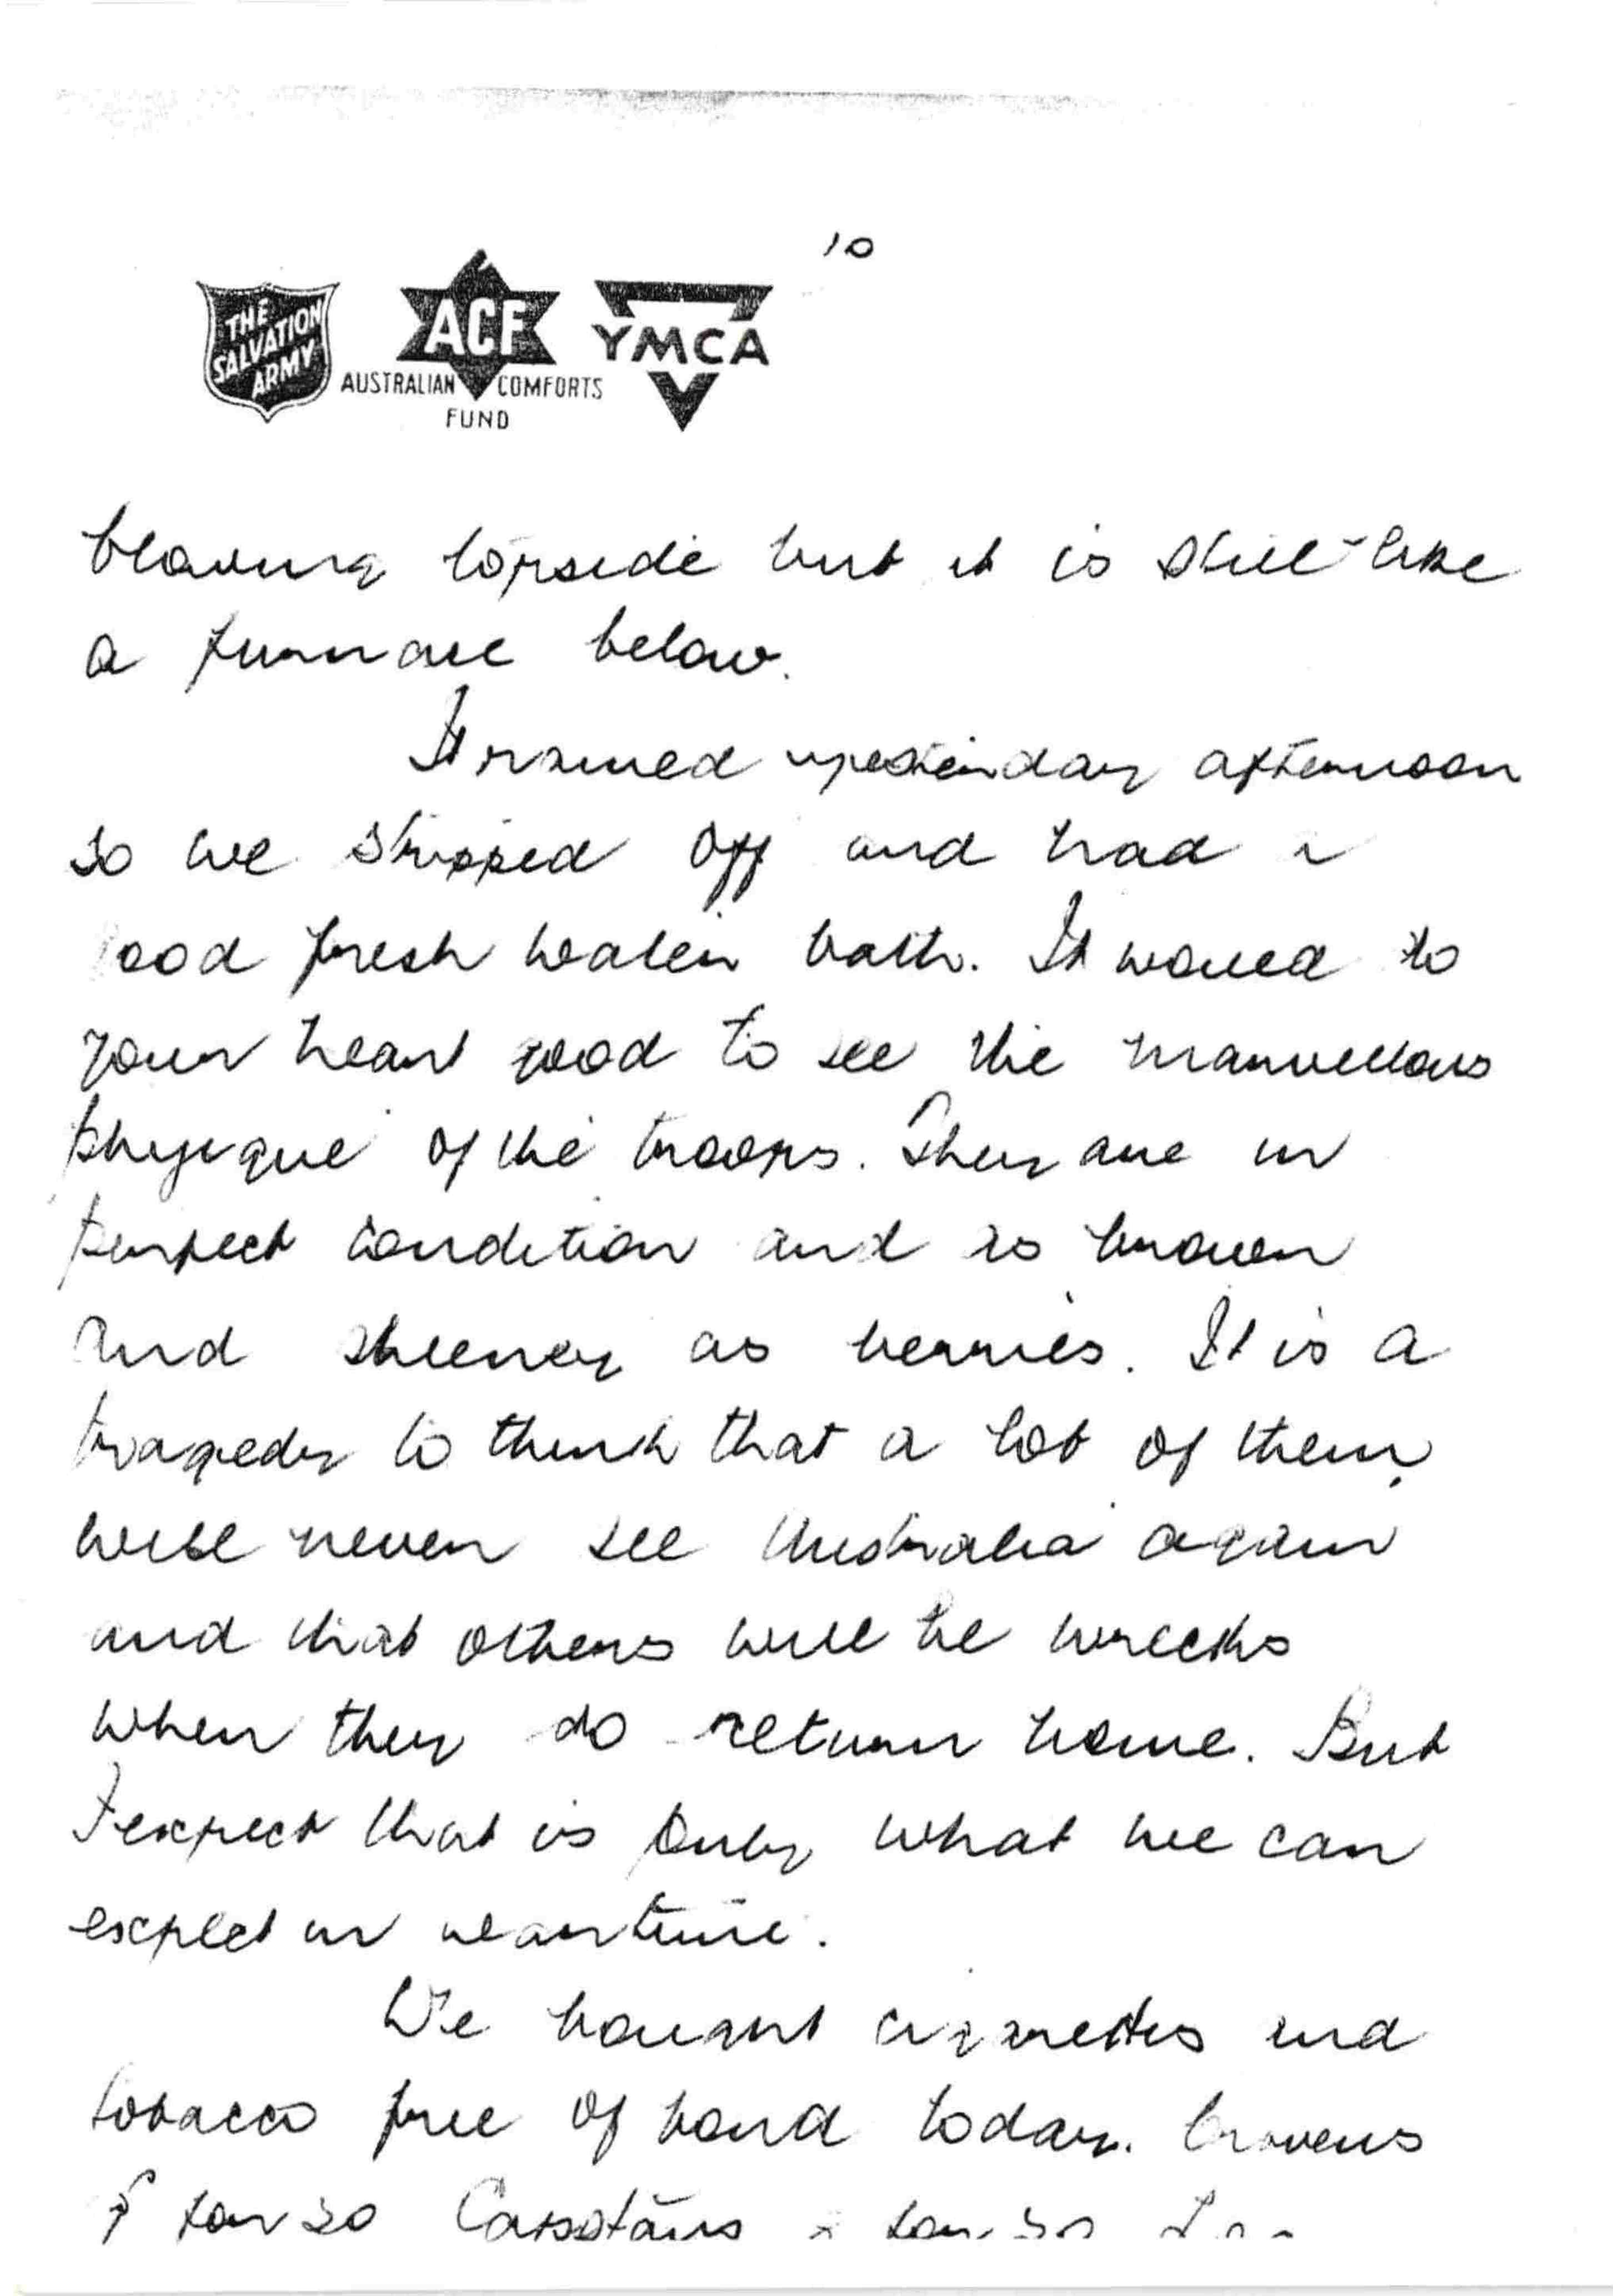 10
THE SALVATION ARMY
ACF
YMCA
AUSTRALIAN COMFORTS
FUND
blowing topside but it is still like
a furnace below.
It rained yesterday afternoon
so we stripped off and had a
good fresh water bath. It would do
your heart good to see the marvellous
physique of the troops. They are in
perfect condition and as brown
and sheeney as berries. It is a
tragedy to think that a lot of them
will never see Australia again
and that others will be wrecks
when they do return home. But
I expect that is only what we can
expect in wartime.
We bought cigarettes and
tobacco free of bond today. Cravens
for 50 Capstans